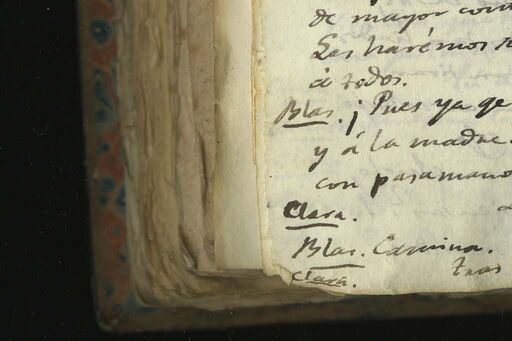 de mayor con
Les harémos
á todos.
Blas. ¡Pues ya
y á la madre.
con pasamano
Clara.
Blas. Camina.
tras
Clara.